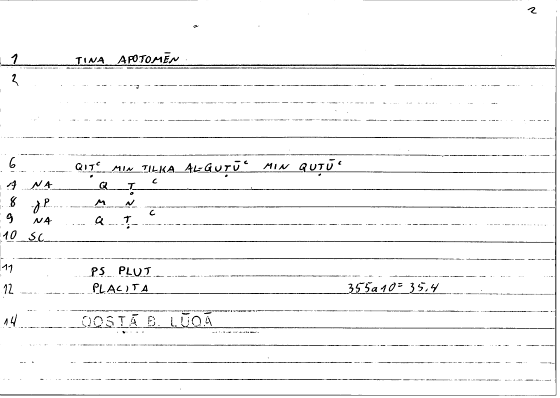 2
1 TINA APOTOMĒN
2
6 QIṬᶜ MIN TILKA AL-QUṬŪᶜ MIN QUṬŪᶜ
7 NA Q Ṭ ᶜ
8 gP M N
9 NA Q Ṭ ᶜ
10 SC
11 PS PLUT
12 PLACITA 355a10 = 35.4
14 QOSṬĀ B. LŪQĀ